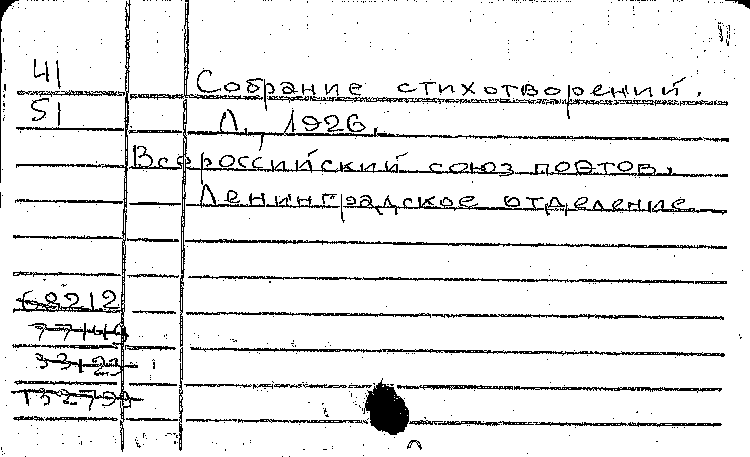 41
Собрание стихотворений.
51
Л., 1926.
Всероссийский союз поэтов.
Ленинградское отделение
68212
33123
132799